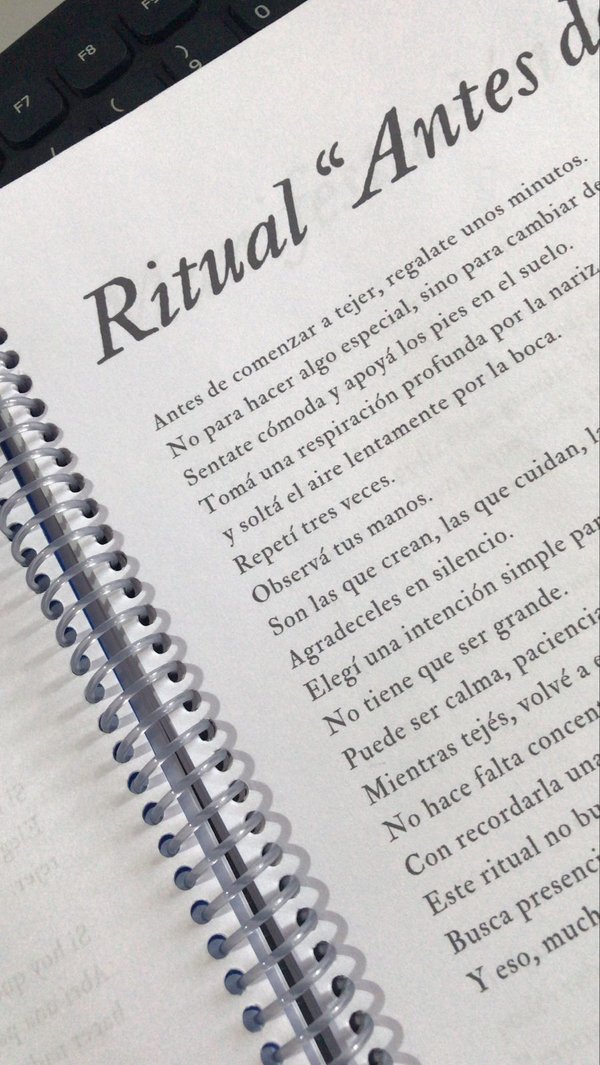 F7
F8
)
9
0
(
Ritual “Antes d
Antes de comenzar a tejer, regalate unos minutos.
No para hacer algo especial, sino para cambiar de
Sentate cómoda y apoyá los pies en el suelo.
Tomá una respiración profunda por la nariz
y soltá el aire lentamente por la boca.
Repetí tres veces.
Observá tus manos.
Son las que crean, las que cuidan, la
Agradeceles en silencio.
Elegí una intención simple par
No tiene que ser grande.
Puede ser calma, paciencia
Mientras tejés, volvé a e
No hace falta concent
Con recordarla una
Este ritual no bu
Busca presenci
Y eso, much